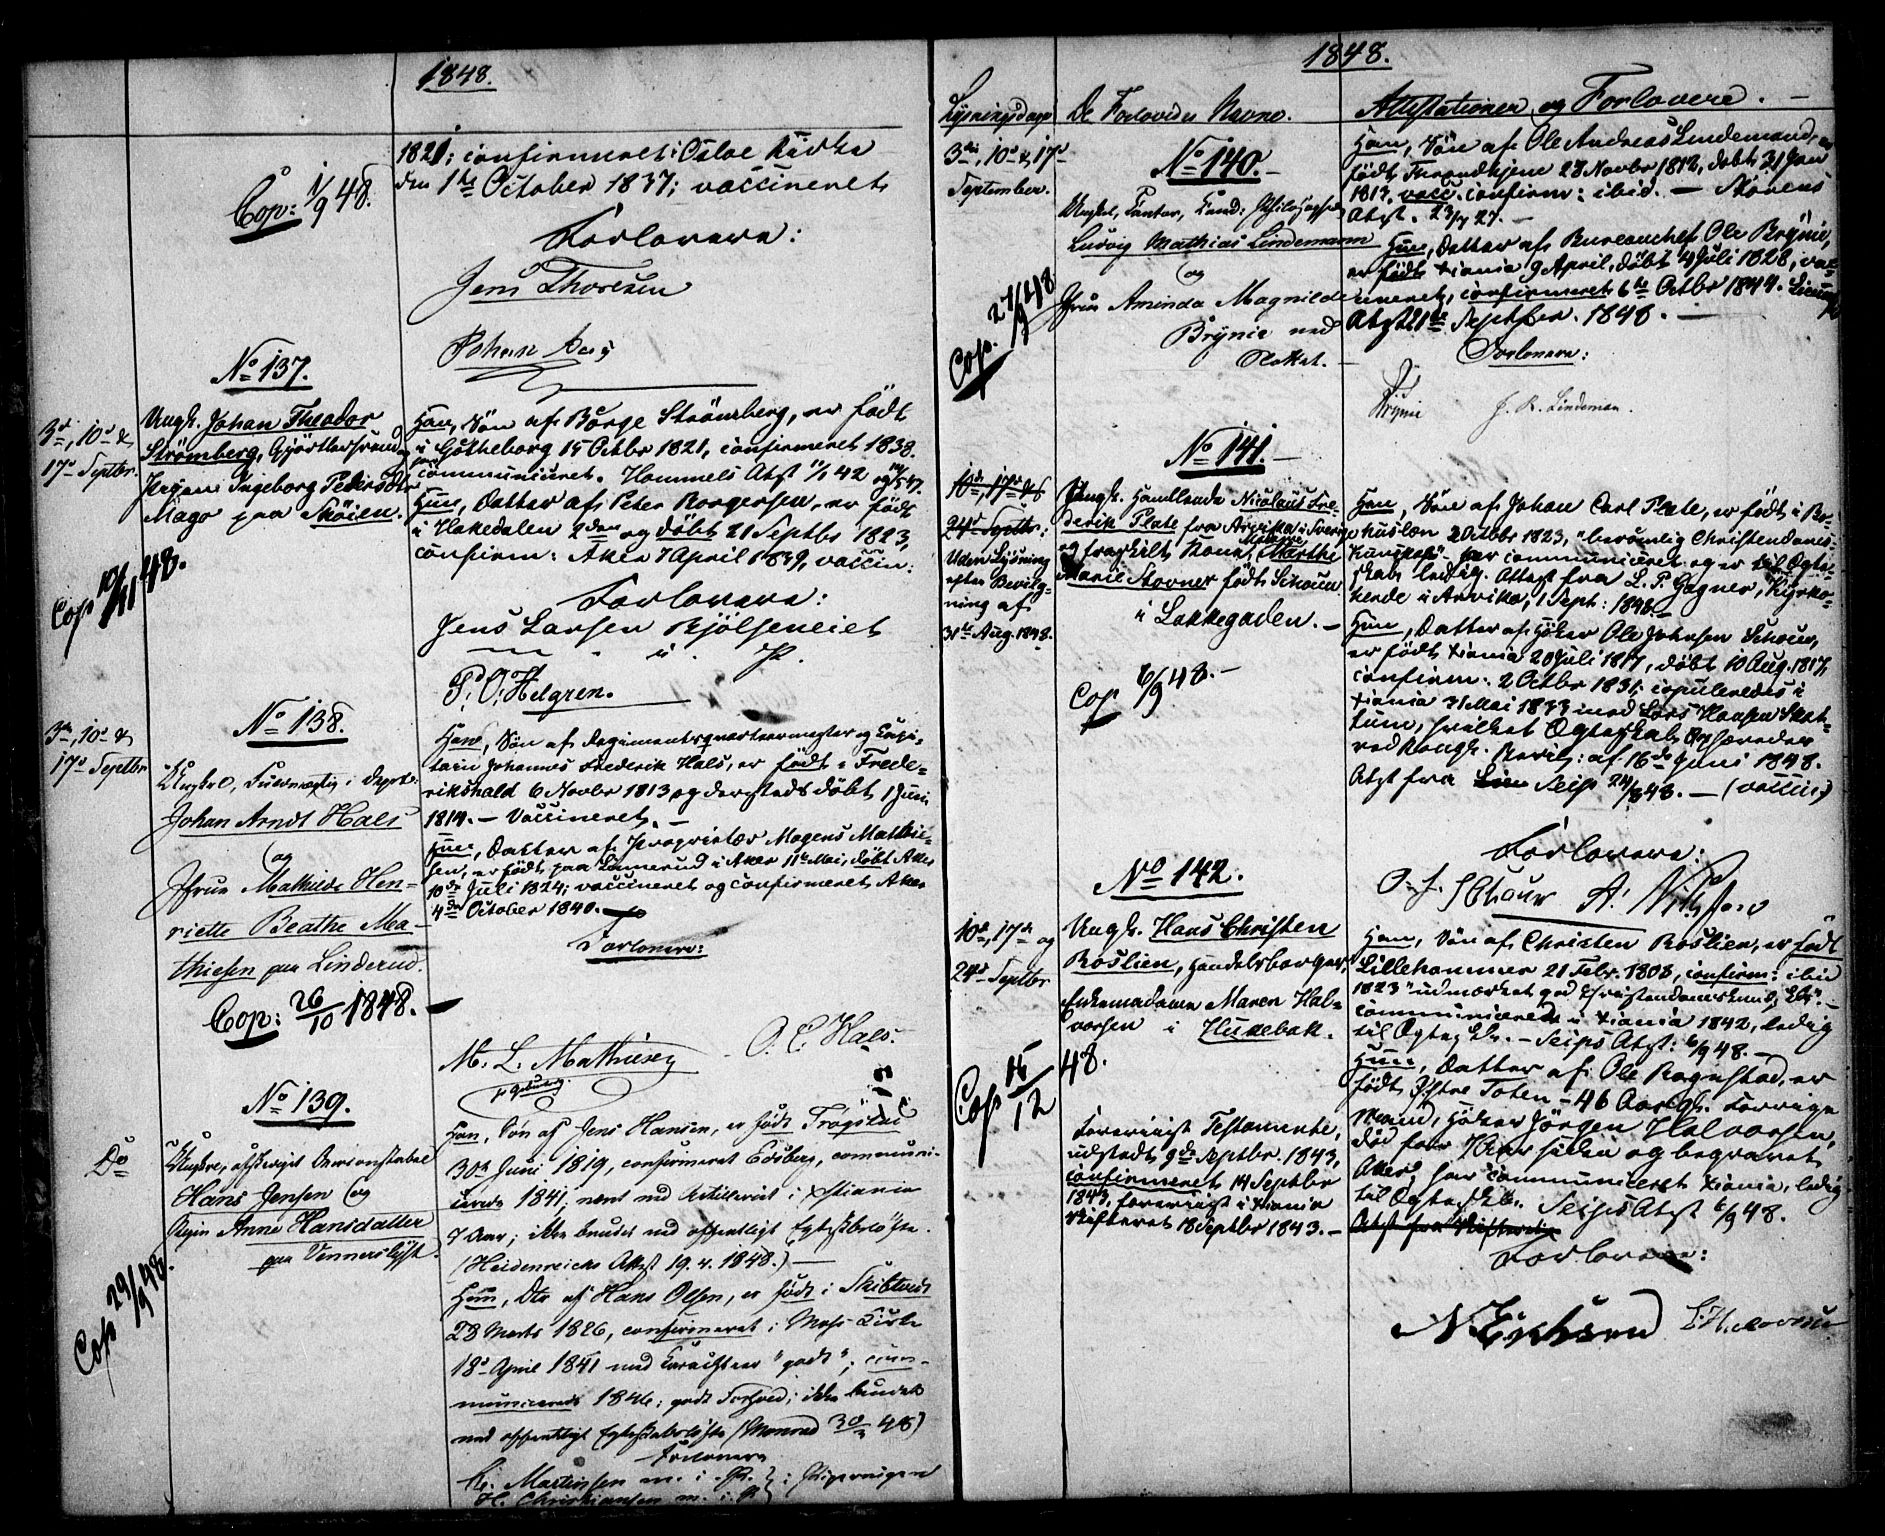 1848.
1821; confirmeret i Osloe Kirke
den 1ste October 1837; vaccineret
Cop: 1/9 48.
Forlovere:
Jens Thoresen
Johan
No 137.
3de, 10de &
17de Septbr.
Ungk. Johan Theodor
Strömberg, Gjörtlersvend
Pigen Ingeborg Pedersdtr
Mago paa Skøien.
Cop 10/11 48.
Han, Søn af Børge Strömberg, er født
i Götheborg 15 Octbr 1821, confirmeret 1838.
communiceret. Hammels Atst 11/1 42 og
Hun, Datter af Peter Borgersen, er født
i Hakedalen 2den og døbt 21 Septbr 1823,
confirm: Aker 7 April 1839, vaccin:
Forlovere:
Jens Larsen Bjölseneiet
P. O. Helgren.
No 138.
3de, 10de &
17de Septbr
Ungkrl, Fuldmægtig i Depte.
Johan Arndt Hals
og
Jfrue Mathilde Hen-
riette Beathe Ma-
thiesen paa Linderud.
Cop: 26/10 1848.
Han, Søn af Regimentsqvarteermester og Capi-
tain Johannes Frederik Hals, er født i Frede-
rikshald 6 Novbr 1813 og dersteds døbt 1 Juni
1814. - Vaccineret. -
Hun, Datter af Proprietær Mogens Mathie-
sen, er født paa Linnerud i Aker 11te Mai, døbt Aker
10de Juli 1824; vaccineret og confirmeret Aker
4de October 1840.
Forlovere:
M. L. Mathiesen O. C. Hals.
No 139.
Do
Ungkre, afskediget
Hans Jensen og
Pigen Anne Hansdatter
paa Vennerslyst.
Cop 29/9 48.
Han, Søn af Jens Hansen, er født Trøgstad
30te Juni 1819, confirmeret Edsberg, communi-
cerede 1841, tient ved Artilleriet i Xstiania
7 Aar; ikke bundet ved offentligt Egteskabsløfte.
(Heidenreichs Attest 19. 4. 1848.)
Hun, Dtr af Hans Olsen, er født i Skibtvedt
28 Marts 1826, confirmeret i Moss Kirke
18de April 1841 med Caracteer "godt"; com-
municerede 1846; godt Forhold; ikke bundet
ved offentligt Egteskabsløfte (Monrad 48)
Forlovere
Martinsen m. i. P.
H. Christiansen m. i. P.
1848.
Lysningsdage De Forlovedes Navne. Attestationer og Forlovere.
3de, 10de & 17de
September.
No 140.
Ungkl, Kantor, Cand: Philosophie
Ludvig Mathias Lindemann
og
Jfrue Aminda Magnilde
Brynie ved
Slottet.
Cop. 27/9 48
Han, Søn af Ole Andreas Lindemand, er
født Trondhjem 28 Novbr 1812, døbt 31 Jan
1813, vacc. confirm: ibid. - Störens
Atst. 23/7 27. -
Hun, Datter af Bureauchef Ole Brynie,
er født Xiania 9 April, døbt 4 Juli 1828, vac-
cineret, confirmeret 6te Octbr 1844.
Atst 21de Septber. 1848. -
Forlovere:
Brynie J. R. Lindeman.
No 141.
10de, 17de &
24de Septbr:
Uden Lysning
efter Bevilg-
ning af
31te Aug. 1848.
Ungk. Handlende Nicolaus Fre-
derik Plate fra Arvika i Sverige
og fraskilt Kone Marthe
Marie Stovner født Schour
i Lakkegaden. -
Cop 6/9 48. -
Han, Søn af Johan Carl Plate, er født i Bo-
huslæn 2 Octbr 1823, "berömlig Christendoms-
kundskab" har communiceret og er til Ægte-
skab ledig. Attest fra L. P. Gagner, Kyrko-
herde i Arvika, 1 Sept: 1848.
Hun, Datter af Høker Ole Johnsen Schour,
er født Xiania 20 Juli 1817, døbt 10 Aug. 1817,
confirm: 2 Octbr 1831; copuleredes i
Xiania 31 Mai 1833 med Lars Hansen
hvilket Ægteskab ophævedes
ved Kongl. Bevilg: af 16de Juni 1848.
Atst fra Seip 24/8 48. - (vaccin.)
Forlovere:
O. J. Schour A.
No 142.
10de, 17de og
24de Septbr
Ungk. Hans Christen
Roslien, Handelsborger,
Enkemadame Maren Hal-
vorsen i Hukebak.
Cop 15/12 48.
Foreviist Testamente,
udstedt 9de Septbr. 1843,
confirmeret 14 Septbr
1843, foreviist i Xiania
Skifteret 18 Septbr 1843. -
Han, Søn af Christen Roslien, er født
Lillehammer 21 Febr. 1808, confirm: ibid
1823 "udmærket god Christendomskund,
communicerede i Xiania 1842, ledig
til Ægtesk. - Seips Atst: 6/9 48. -
Hun, Datter af Ole Rognstad, er
født Østre Toten - 46 Aar gl. Forrige
Mand, Høker Jörgen Halvorsen,
død for siden og begravet
Aker, har communiceret Xiania, ledig
til Ægteskab. Seips Atst 6/9 48.
Atst fra Skifteretten
Forlovere: